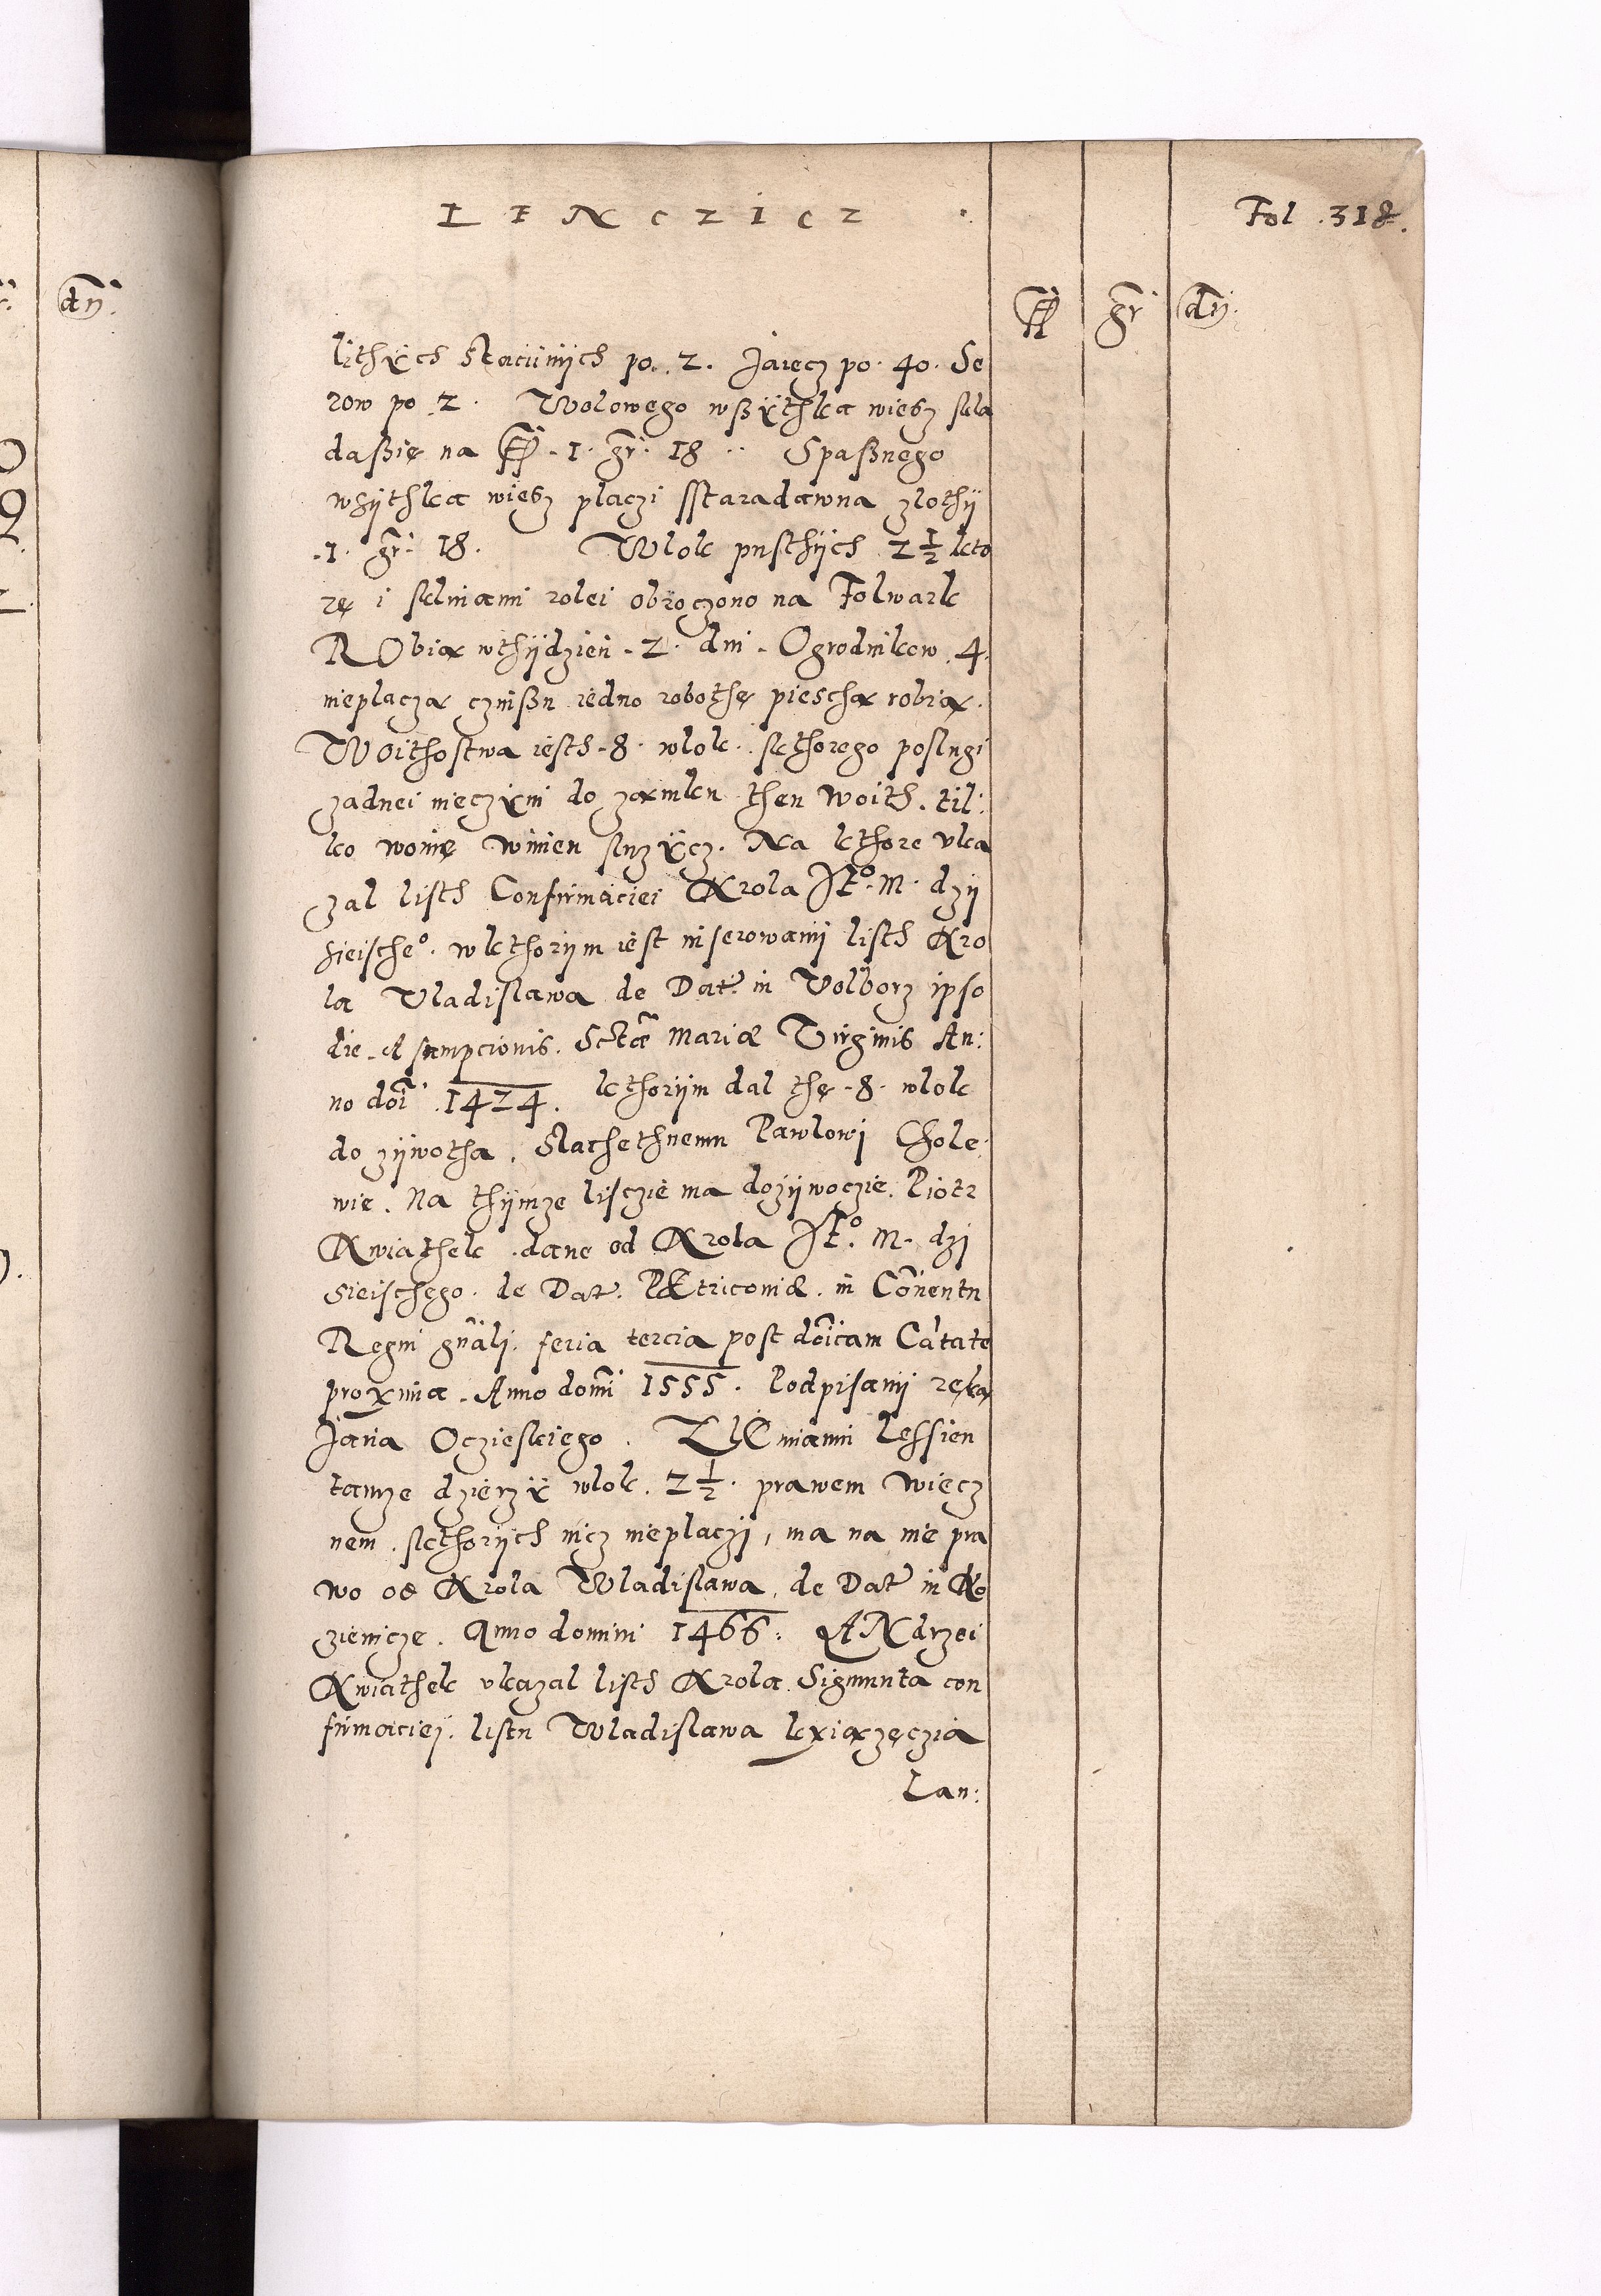 LENCZICZ
Fol .318.
fl gr dn.
dn.
lithych staciinych po. 2. Jaiecz po. 40. Se
row po 2. Wolowego wßythka wiesz skla
daßię na fl. 1. gr. 18. Spaßnego
wszythka wiesz placzi sstaradawna zlothy
.1. gr. 18. Wlok pusthych 2 1/2 kto
rę i sklinami rolei obroczono na Folwark
RObią wthydzien .2. dni. Ogrodnikow .4.
nieplaczą czinßu iedno robothę pieschą robią.
Woithostwa iesth .8. wlok. skthorego poslugi
zadnei nieczyni do zamku then woith. til:
ko woinę winien sluzycz. Na kthore vka
zal listh Confirmaciei Krola Je°. M. dzy
sieische°. wkthorym iest inserowany listh Kro
la Vladislawa de Dat. in Volborz ipso
die Assumpcionis. Sctæ Mariæ Virginis An:
no doi. 1424. kthorym dal thę .8. wlok
do zywotha. Slachethnemu Pawlowi Chole
wie. Na thymze liscziė ma dozywoczie. Piotr
Kwiathek. dane od Krola Je°. M. dzi
sieischego. de Dat. PEtriconiæ. in Conuentu
Regni gnali. feria tercia post doicam Catate
proxima. Anno domi 1555. Podpisany ręką
Jana Oczieskiego. ZIEmianin Lessien
tamze dzierzy wlok. 2 1/2. prawem wiecz
nem. skthorych nicz nieplaczy, ma na nie pra
wo od Krola Wladislawa. de Dat. in Ko
zienicze. Anno domini 1466. ANdrzei
Kwiathek vkazal listh Krola Sigmunta con
firmaciei. listu Wladislawa kxiązęczia
Lan: